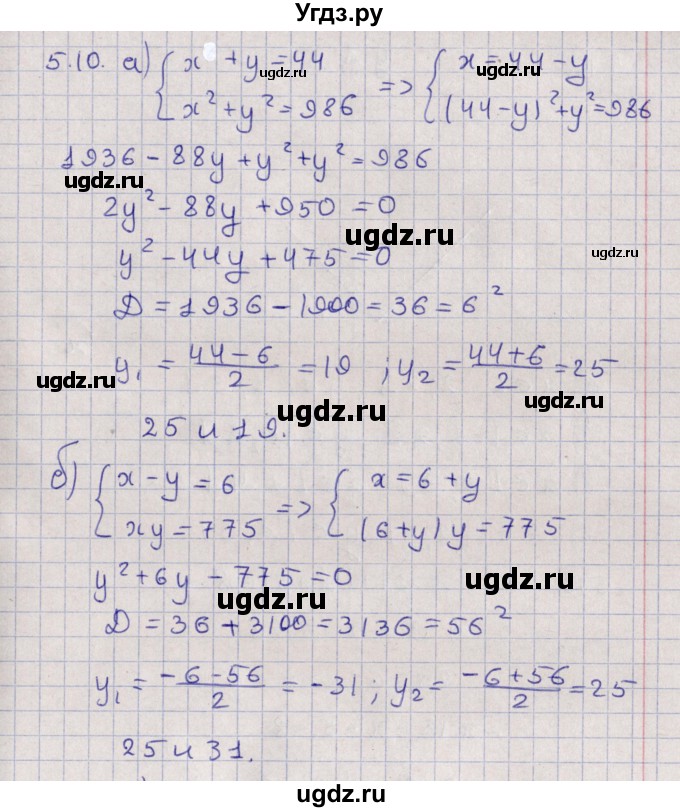 Угдз.ру
5.10. а) { x + y = 44 => { x = 44 - y
x² + y² = 986 (44 - y)² + y² = 986
1936 - 88y + y² + y² = 986
2y² - 88y + 950 = 0
y² - 44y + 475 = 0
Д = 1936 - 1900 = 36 = 6²
y₁ = (44 - 6)/2 = 19 ; y₂ = (44 + 6)/2 = 25
25 и 19.
б) { x - y = 6 => { x = 6 + y
xy = 775 (6 + y) y = 775
y² + 6y - 775 = 0
Д = 36 + 3100 = 3136 = 56²
y₁ = (-6 - 56)/2 = -31 ; y₂ = (-6 + 56)/2 = 25
25 и 31.
ugdz.ru
ugdz.ru
ugdz.ru
ugdz.ru
ugdz.ru
ugdz.ru
ugdz.ru
ugdz.ru
ugdz.ru
ugdz.ru
ugdz.ru
ugdz.ru
ugdz.ru